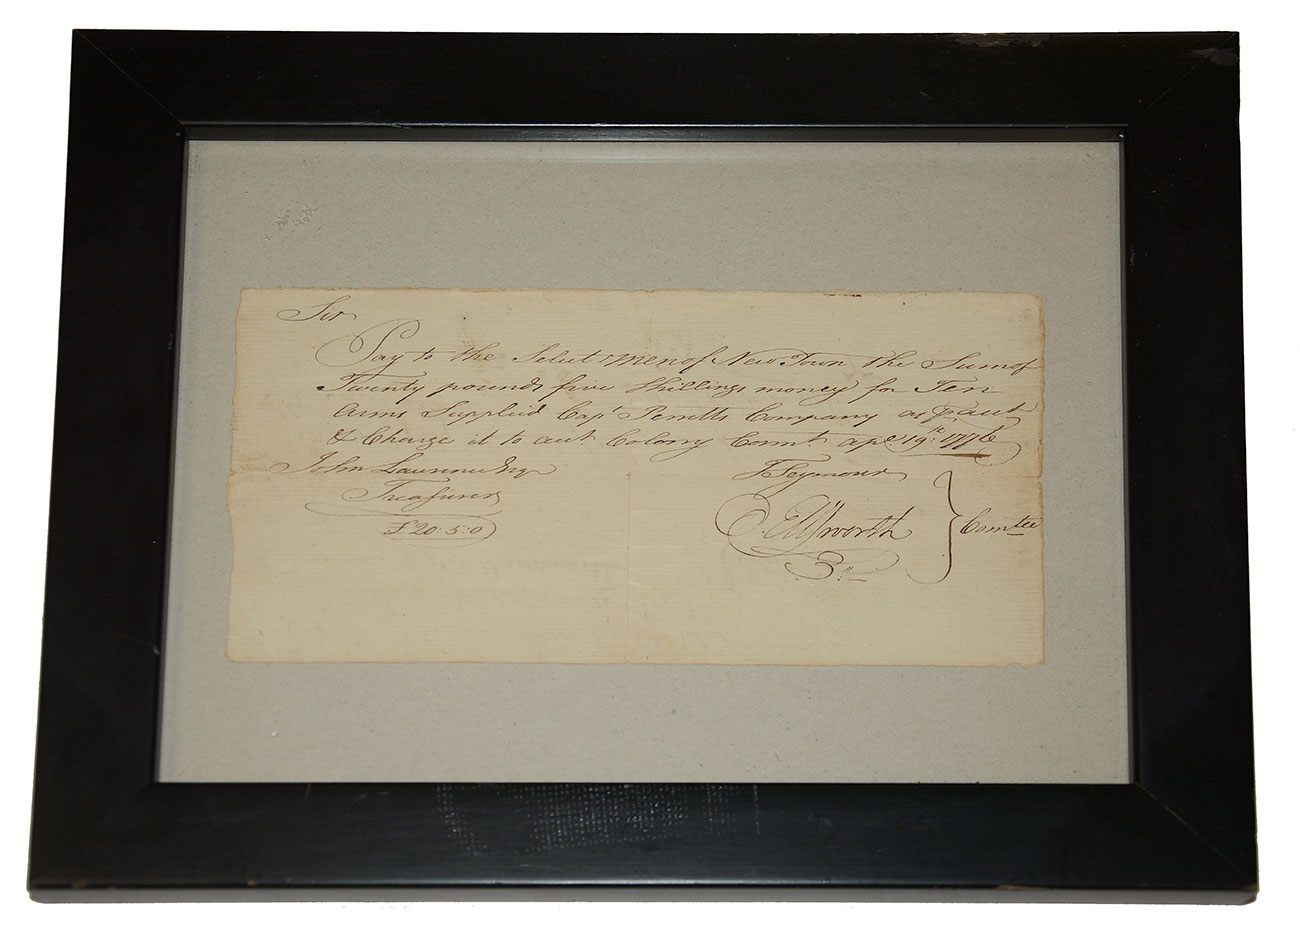 Sir
Pay to the Select men of New Town the Sum of
Twenty pounds five shillings money for Ten
Arms Supplied Capt Company as pr aut
& Charge it to aut Colony Comt apl 19th 1776
John Lawrence Esqr
Treasurer
£20:5:0
T Seymour
O. Ellsworth
3d
Comtee